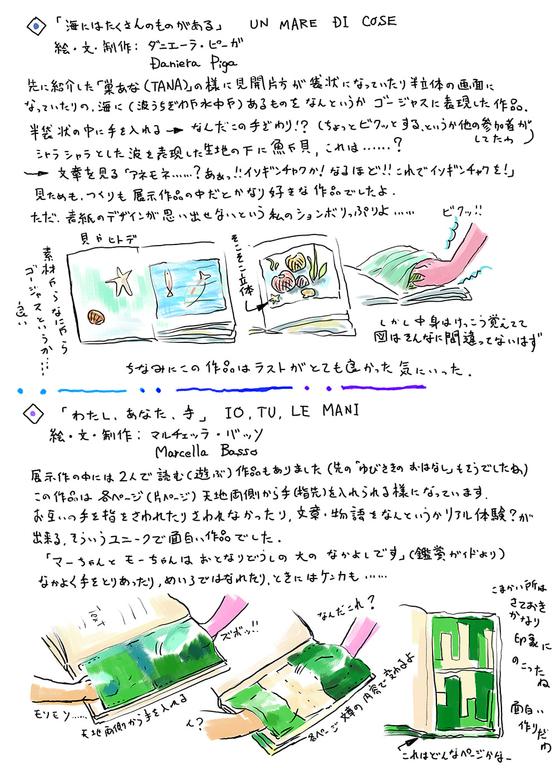 「海にはたくさんのものがある」 UN MARE DI COSE
絵・文・制作：ダニエーラ・ピーガ
Daniera Piga
先に紹介した「巣あな（TANA）」の様に見開片方が袋状になっていたり半立体の画面に
なっていたりの、海に（波うちぎわや水中や）あるものをなんというかゴージャスに表現した作品。
半袋状の中に手を入れる→なんだこの手ざわり!?（ちょっとビクッとする、というか他の参加者が
してたわ）
シャラシャラとした波を表現した生地の下に魚や貝、これは……？
→文章を見る「アネモネ……？あぁっ!!イソギンチャクか！なるほど!!これでイソギンチャクを！」
見ためも、つくりも展示作品の中だとかなり好きな作品でしたよ。
ただ、表紙のデザインが思い出せないという私のションボリっぷりよ……
ビクッ!!
貝やヒトデ
そこそこ立体
素材やらなにやら
ゴージャスというか…
良い
しかし中身はけっこう覚えてて
図はそんなに間違ってないはず
ちなみにこの作品はラストがとても良かった気にいった。
「わたし、あなた、手」 IO, TU, LE MANI
絵・文・制作：マルチェッラ・バッソ
Marcella Basso
展示作の中には2人で読む（遊ぶ）作品もありました（先の「ゆびさきのおはなし」もそうでしたね）
この作品は各ページ（片ページ）天地両側から手（指先）を入れられる様になっています。
お互いの手を指をさわれたりさわれなかったり、文章・物語をなんというかリアル体験？が
出来る、そういうユニークで面白い作品でした。
「マーちゃんとモーちゃんはおとなりどうしの大のなかよしです」（鑑賞ガイドより）
なかよく手をとりあったり、めいろではなれたり、ときにはケンカも……
ズボッ!!
モソモソ……
天地両側から手を入れる
なんだこれ？
ん？
各ページ文章の内容で変わるよ
こまかい所は
さておき
かなり
印象に
のこった
ね
面白い
作りだ
わ
これはどんなページかな〜